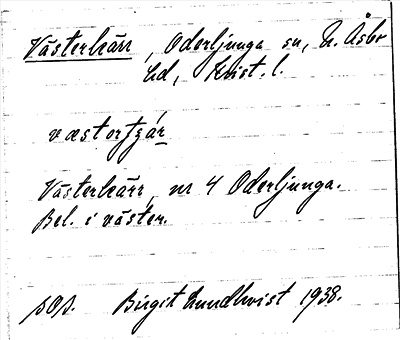 Västerkärr, Oderljunga sn, N. Åsbo
hd, Krist. l.
væstorʃɟár
Västerkärr, nr 4 Oderljunga.
Bel. i väster.
pop. Birgit Lundkvist 1938.